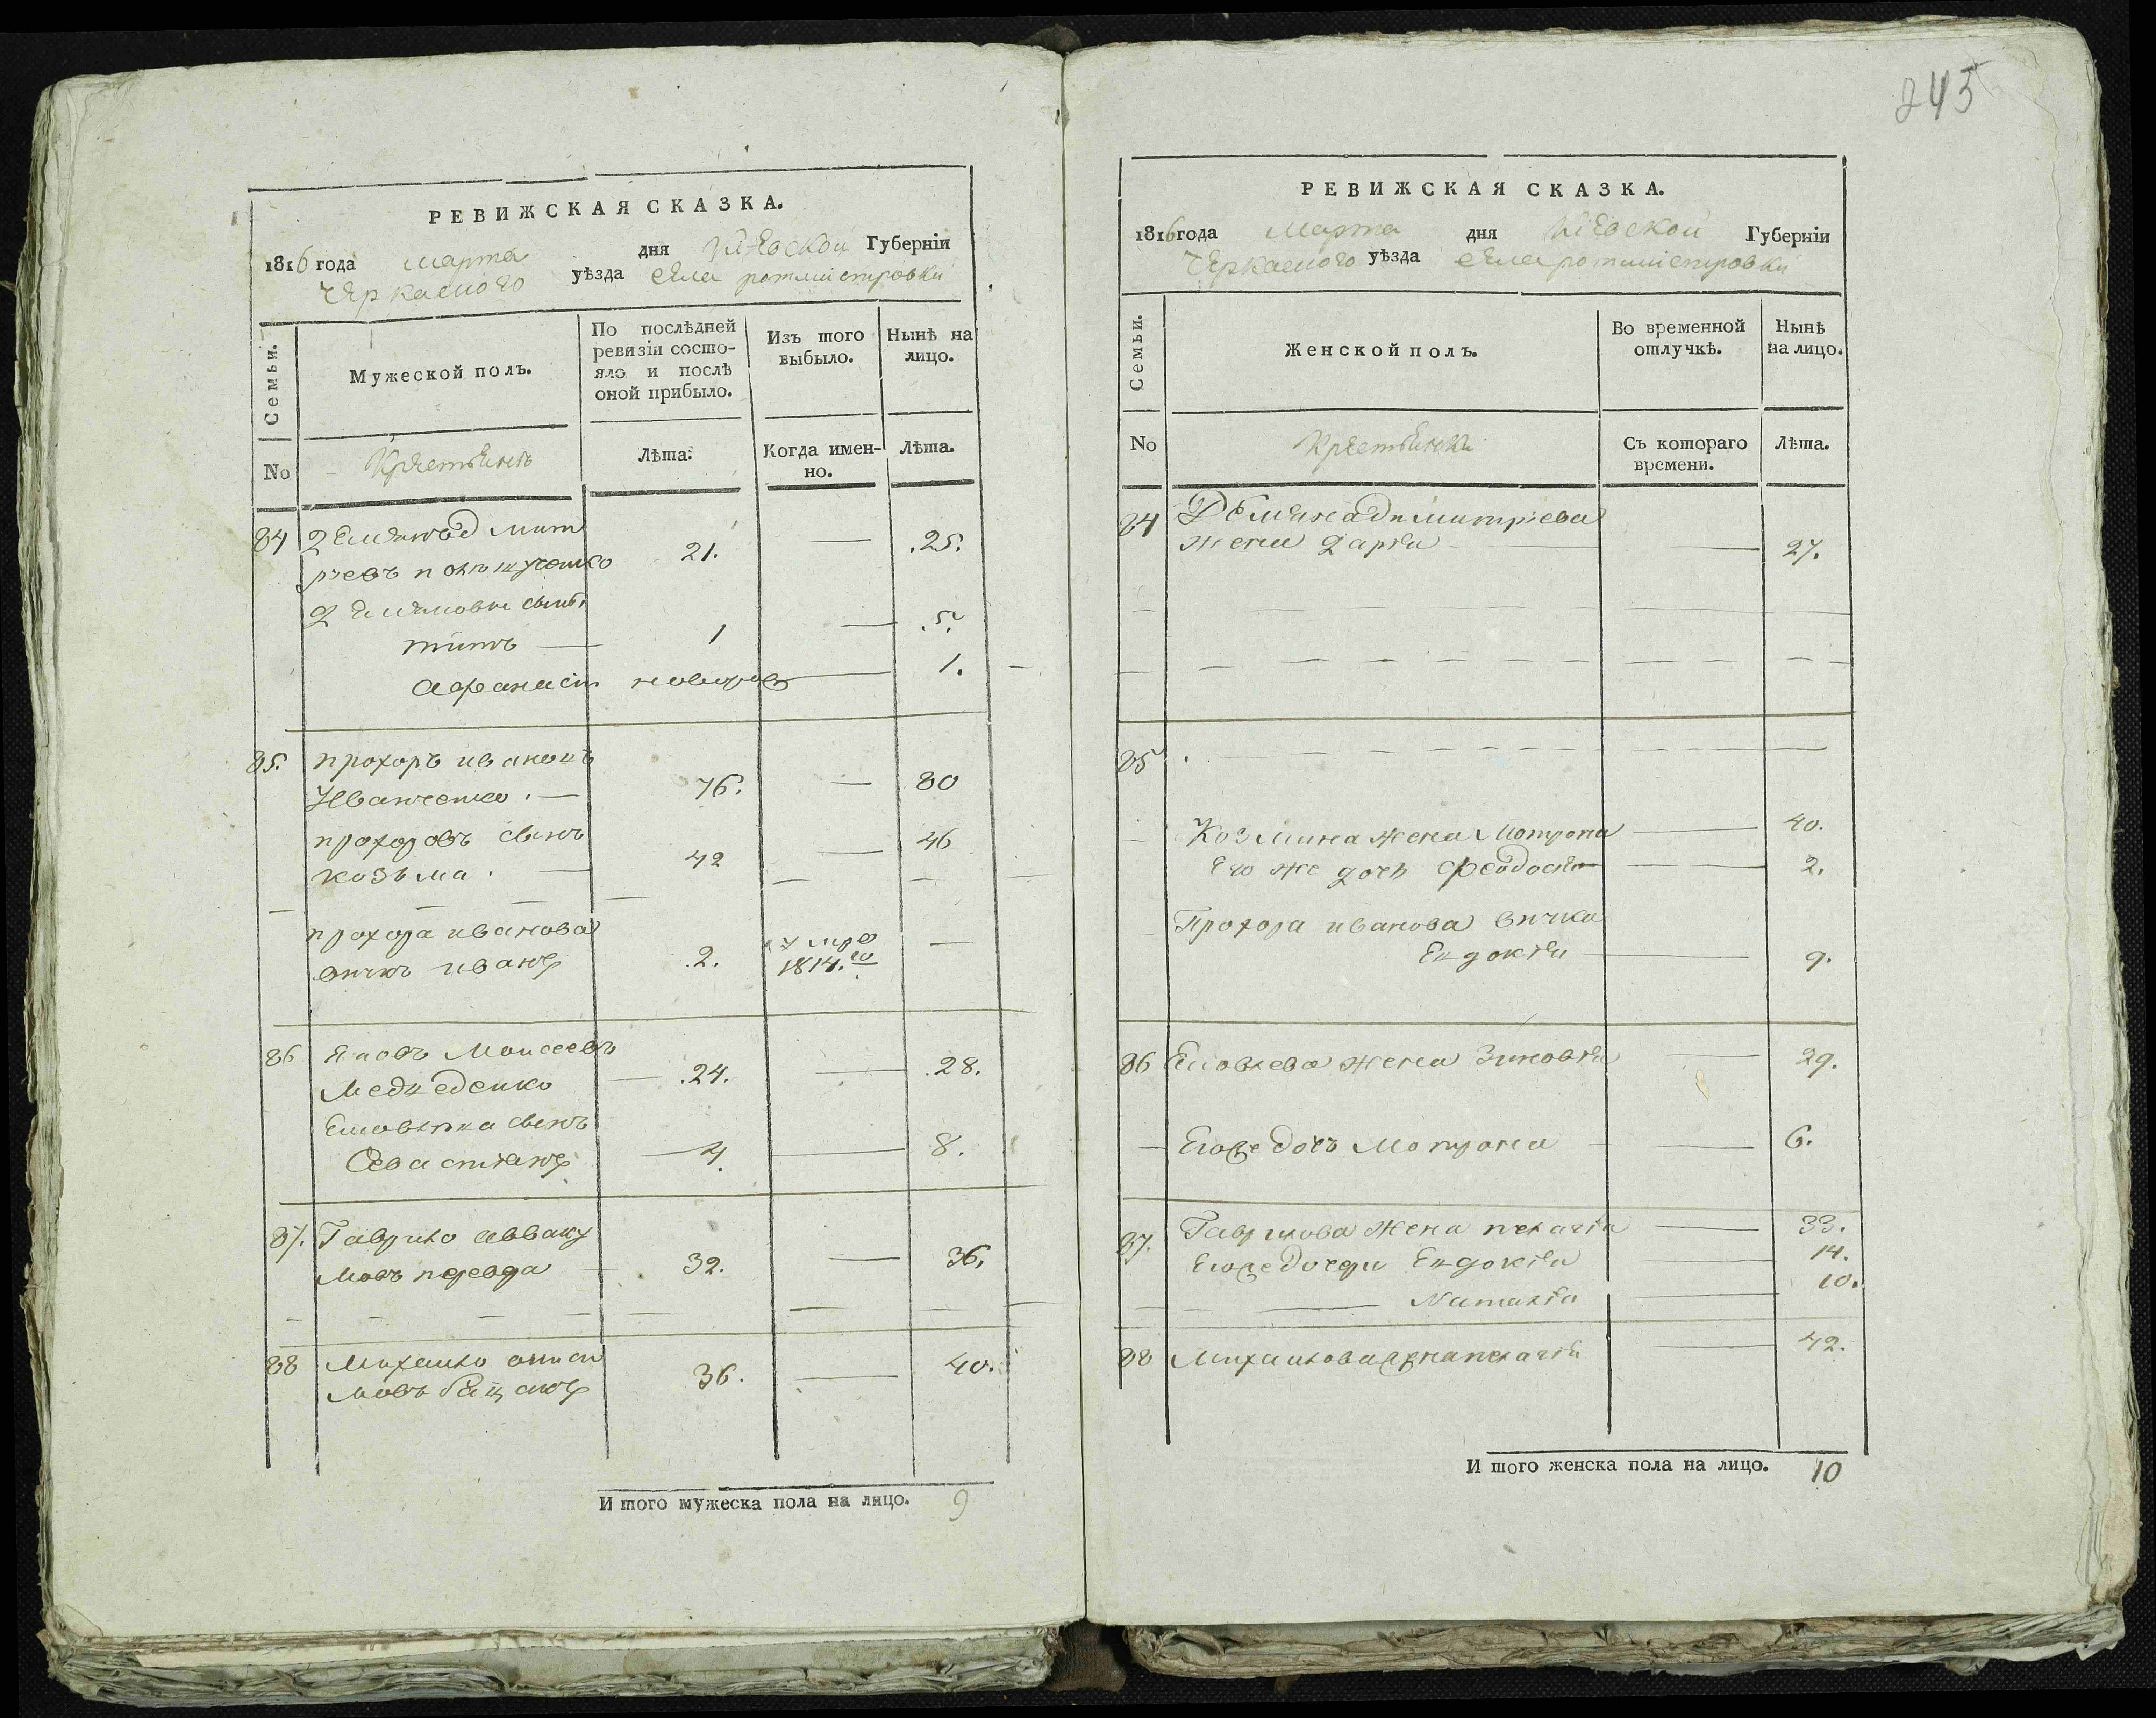 РЕВИЖСКАЯ СКАЗКА.
1816 года марта дня Кіевской Губерніи
Черкаского уѣзда села ротмистровки
Семьи.
Мужеской полъ.
По послѣдней
ревизіи состо-
яло и послѣ
оной прибыло.
Изъ того
выбыло.
Нынѣ на
лицо.
No
Лѣта.
Когда имен-
но.
Лѣта.
84 Демянъ Дмит
21. 25.
Демяновы сынъ
титъ 1 5.
Афанасій 1.
85. прохоръ ивановъ
Иванченко. 76. 80
прохоровъ сынъ 46
козьма. 42
прохора иванова
внукъ иванъ 2. умре
1814.го
86 Яковъ Моисеевъ
24. 28.
сынъ
Севастіянъ 4 8.
87. Гаврило авваку
мовъ 32. 36.
88 Михайло
36. 40.
И того мужеска пола на лицо. 9
245
РЕВИЖСКАЯ СКАЗКА.
1816 года Марта дня Кіевской Губерніи
Черкаского уѣзда села ротмистровки
Семьи.
Женской полъ.
Во временной
отлучкѣ.
Нынѣ
на лицо.
No
Съ котораго
времени.
Лѣта.
84 Демяна Димитріева
жена дарія 27.
85
Козмина жена Мотрона 40.
Его же дочь Феодосія 2.
Прохора иванова внука
Евдокія 9.
86 Яковлева жена Зиновія 29.
Его же дочь Мотрона 6.
87. Гаврилова жена пелагія 33.
Его же дочери Евдокія 14.
Наталія 10.
88 Михайлова жена пелагія 42.
И того женска пола на лицо. 10